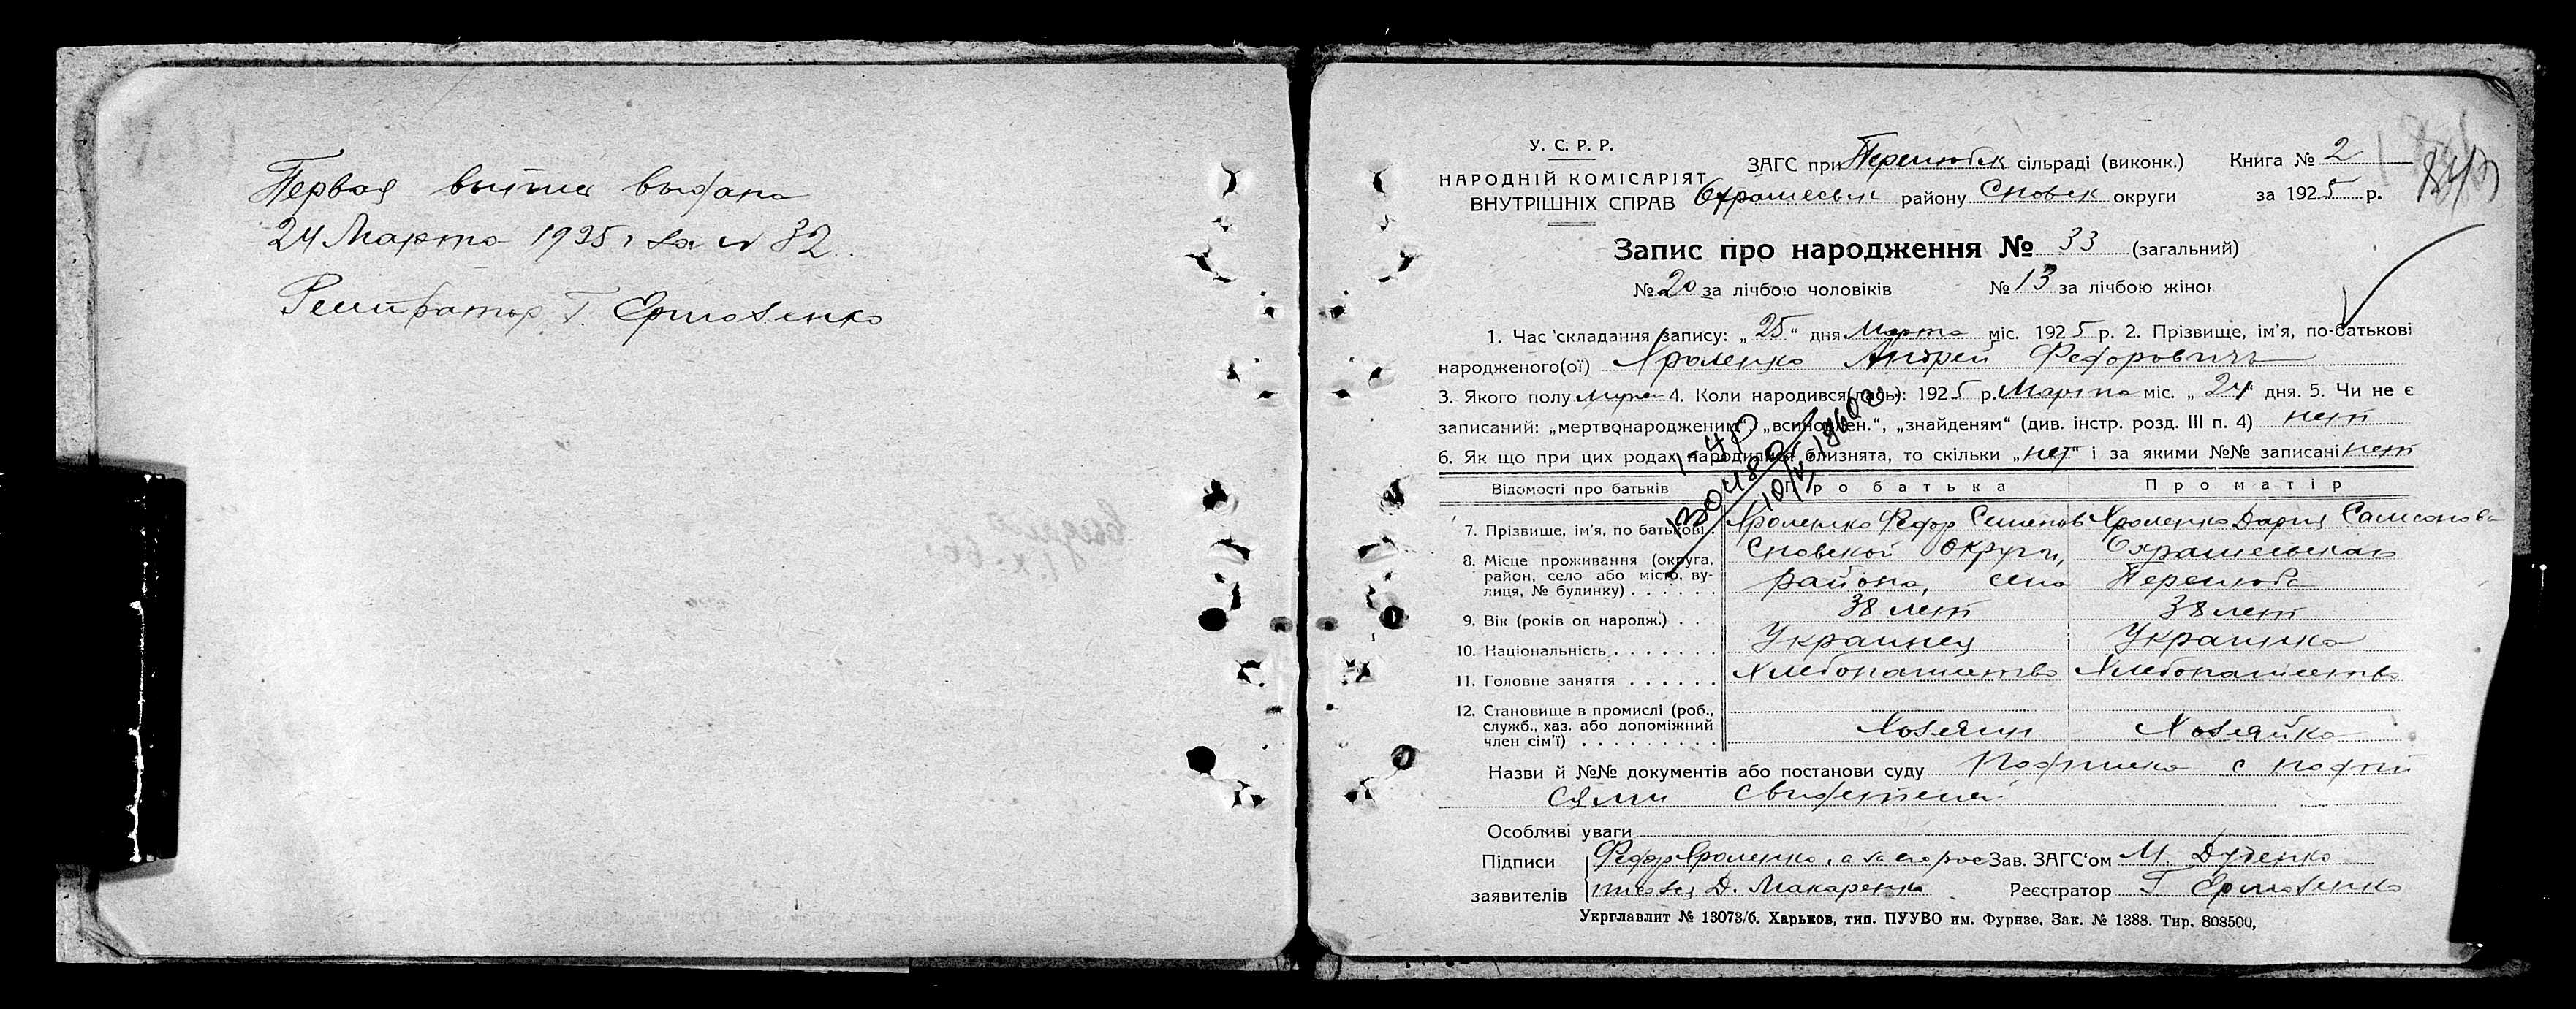 Первая выпись выдана
24 Марта 1925 г за № 32.
Регистратор Г. Ермоленко
У. С. Р. Р.
НАРОДНІЙ КОМІСАРІЯТ
ВНУТРІШНІХ СПРАВ
ЗАГС при Перелюбск сільраді (виконк.) Книга № 2
району Сновск округи за 1925 р.
Запис про народження № 33 (загальний)
№ 20 за лічбою чоловіків № 13 за лічбою жіно
1. Час складання запису: „25“ дня Марта міс. 1925 р. 2. Прізвище, ім'я, по-батькові
народженого(ої) Хроленко Андрей Федорович
3. Якого полу муж 4. Коли народився(лась): 1925 р. Марта міс. „24“ дня. 5. Чи не є
записаний: „мертвонародженим“, „всиновлен.“, „знайденям“ (див. інстр. розд. III п. 4) нет
6. Як що при цих родах народилися близнята, то скільки „нет“ і за якими №№ записані нет
Відомості про батьків Про батька Про матір
7. Прізвище, ім'я, по батькові. Хроленко Федор Семенов Хроленко Дария Самсонова
8. Місце проживання (округа, Сновской Округи,
район, село або місто, ву- района, села Перелюба
лиця, № будинку)
9. Вік (років од народж.) 38 лет 38 лет
10. Національність Украинец Украинка
11. Головне заняття Хлебопашество Хлебопашество
12. Становище в промислі (роб.,
служб., хаз. або допоміжний Хозяин Хозяйка
член сім'ї)
Назви й №№ документів або постанови суду Подписка с подпи
сями свидетелей
Особливі уваги
Підписи Федор Хроленко, а за его Зав. ЗАГС'ом М. Дуденко
заявителів Д. Макаренко Реєстратор Г Ермоленко
Укрглавлит № 13073/б. Харьков, тип. ПУУВО им. Фрунзе, Зак. № 1388. Тир. 808500,